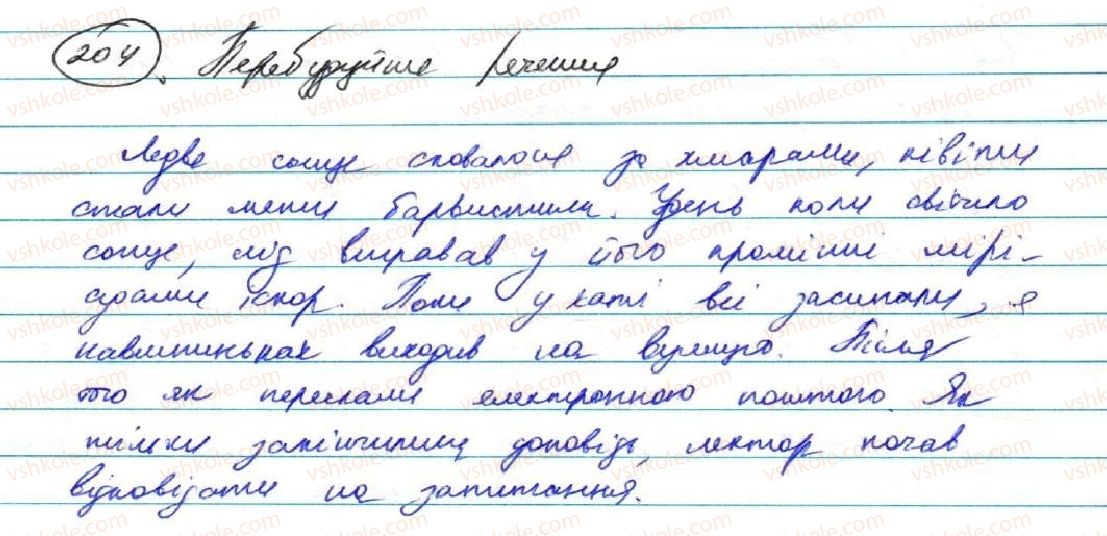 204. Перебудуйте речення
Ледве сонце сховалося за хмарами, квіти
стали менш барвистими. Удень коли світило
сонце, лід вигравав у його промінні мірі-
адами іскор. Коли у хаті всі засинали, я
навшпиньках виходив на вулицю. Після
того як переслали електронною поштою. Як
тільки закінчилина доповідь, лектор почав
відповідати на запитання.